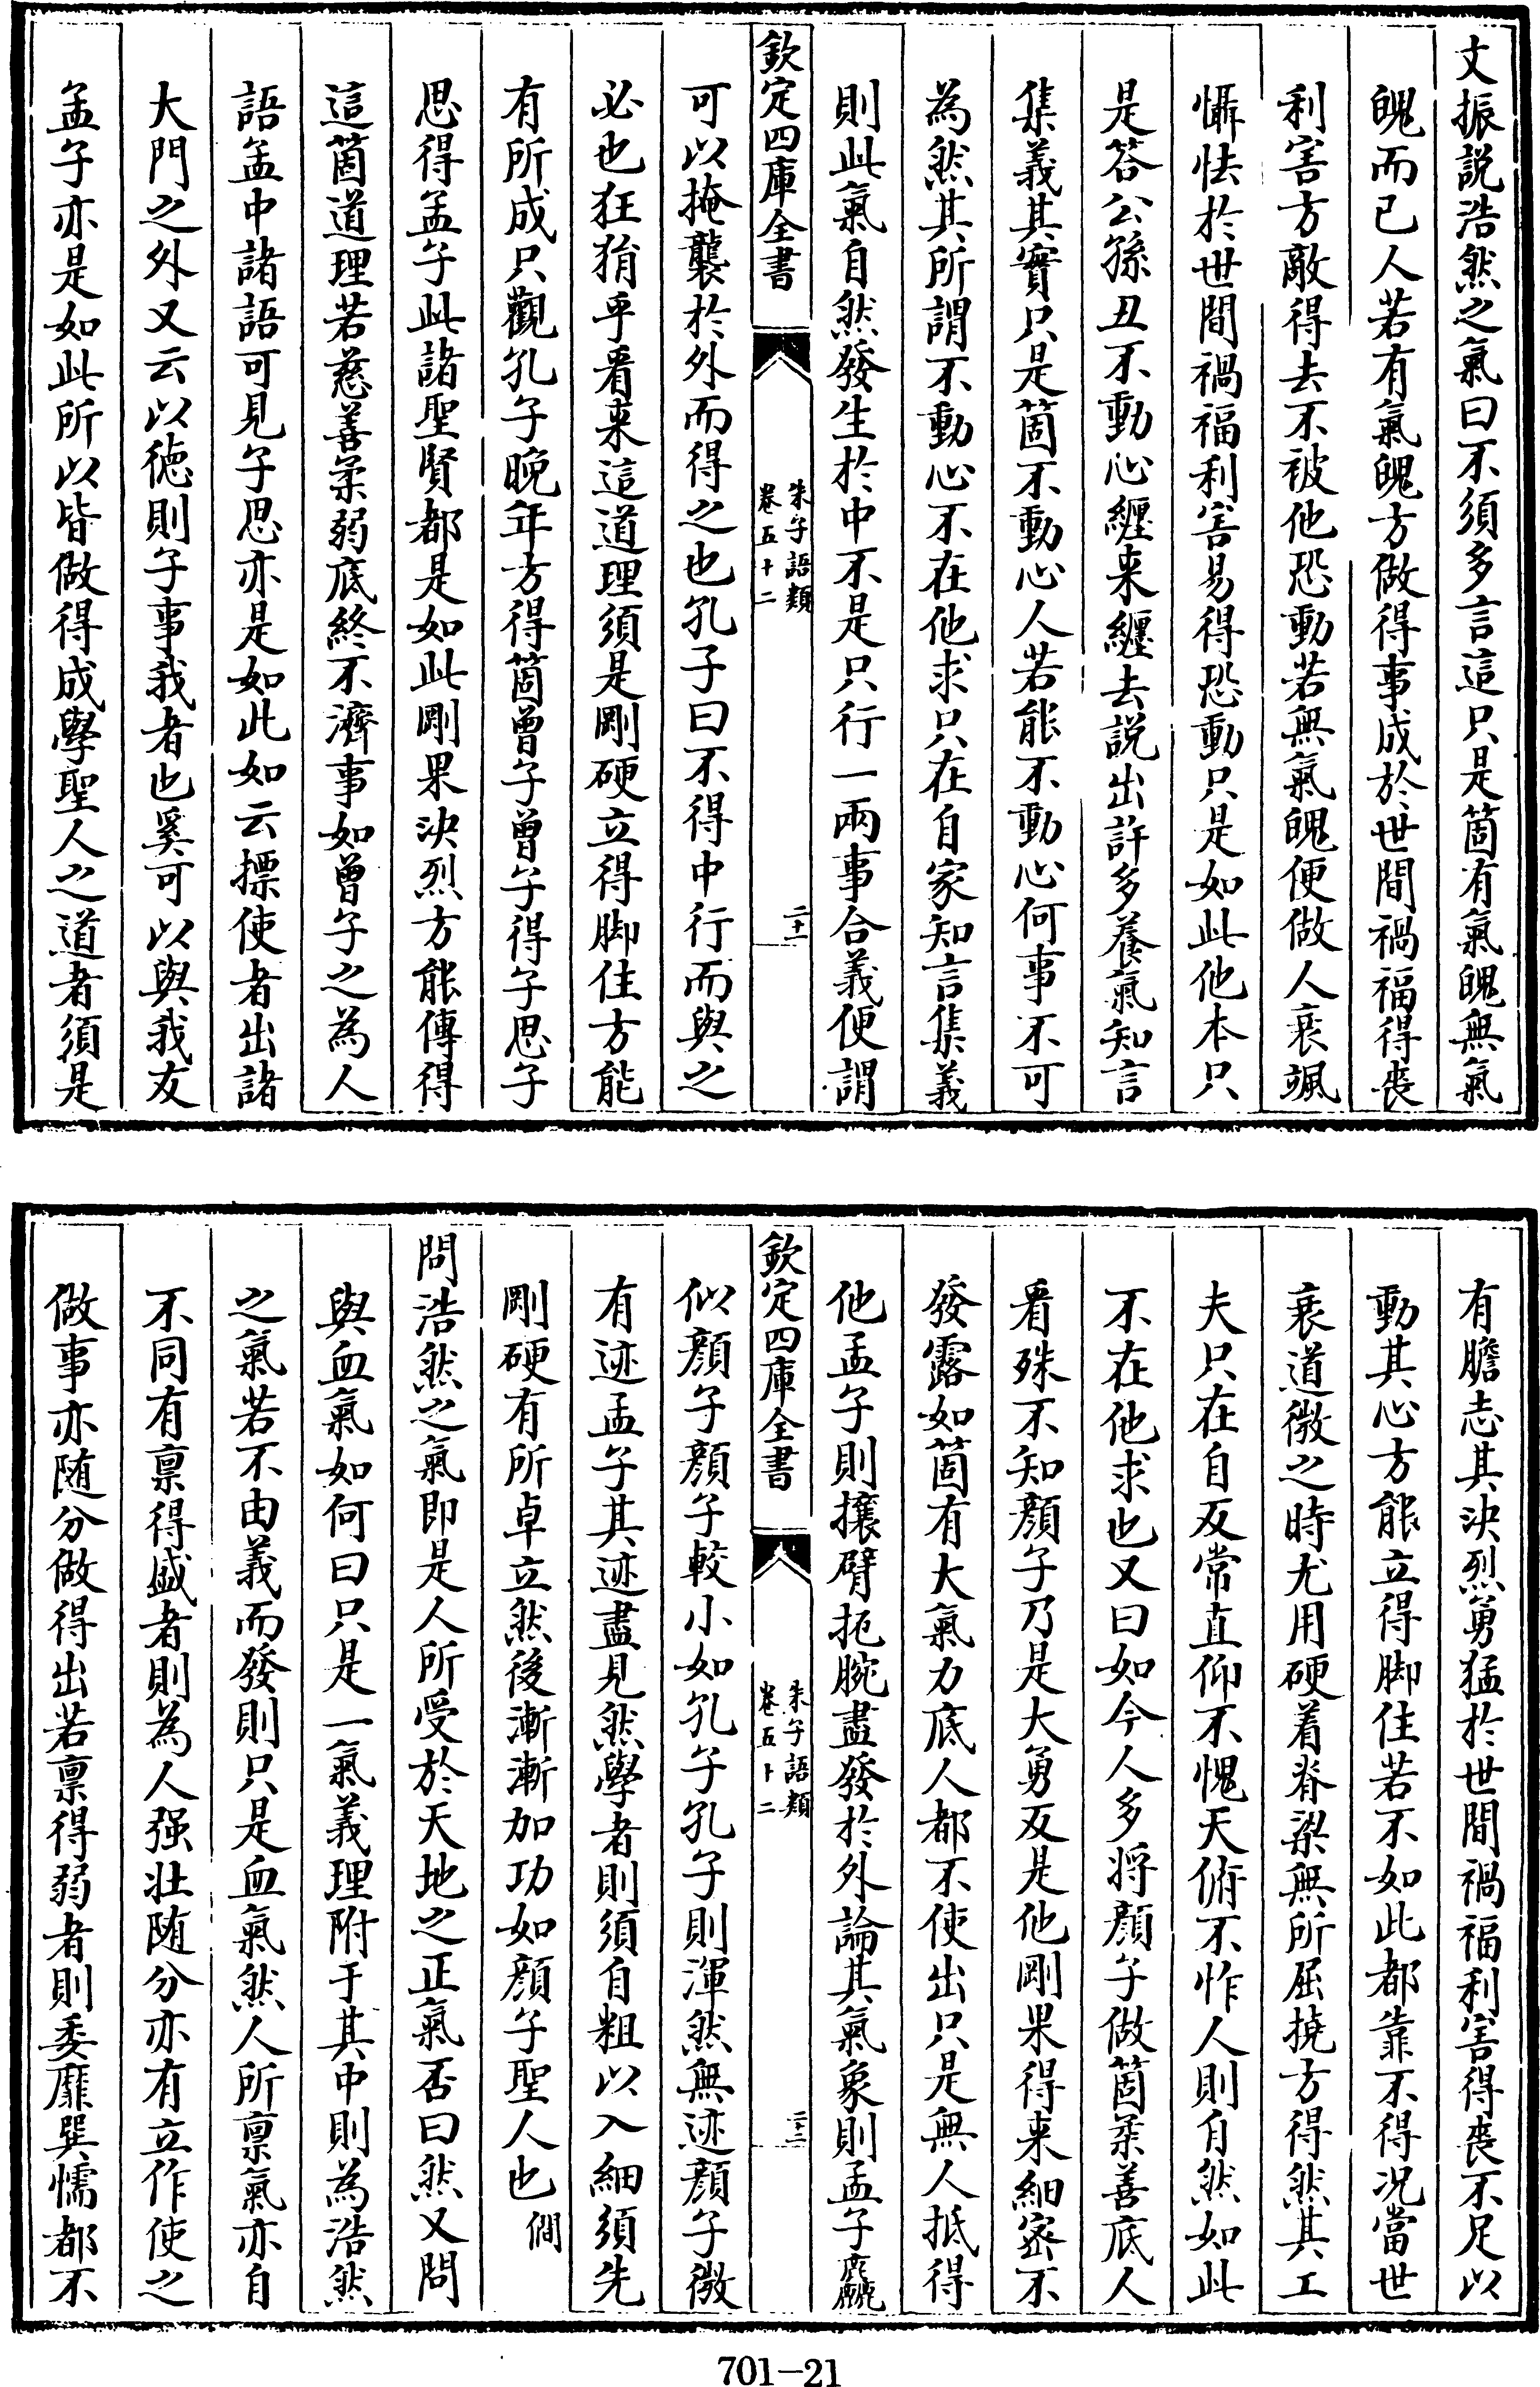 文振説浩然之氣曰不須多言這只是箇有氣魄無氣
魄而已人若有氣魄方做得事成於世間禍福得喪
利害方敵得去不被他恐動若無氣魄便做人衰颯
懾怯於世間禍福利害易得恐動只是如此他本只
是答公孫丑不動心纒来纒去説出許多養氣知言
集義其實只是箇不動心人若能不動心何事不可
為然其所謂不動心不在他求只在自家知言集義
則此氣自然發生於中不是只行一兩事合義便謂
欽定四庫全書
朱子語類
卷五十二
二十一
可以掩襲於外而得之也孔子曰不得中行而與之
必也狂狷乎看来這道理須是剛硬立得脚住方能
有所成只觀孔子晚年方得箇曾子曾子得子思子
思得孟子此諸聖賢都是如此剛果決烈方能傳得
這箇道理若慈善柔弱底終不濟事如曾子之為人
語孟中諸語可見子思亦是如此如云摽使者出諸
大門之外又云以徳則子事我者也奚可以與我友
孟子亦是如此所以皆做得成學聖人之道者須是
有膽志其決烈勇猛於世間禍福利害得喪不足以
動其心方能立得脚住若不如此都靠不得况當世
衰道微之時尤用硬着脊梁無所屈撓方得然其工
夫只在自反常直仰不愧天俯不怍人則自然如此
不在他求也又曰如今人多將顔子做箇柔善底人
看殊不知顔子乃是大勇反是他剛果得来細宻不
發露如箇有大氣力底人都不使出只是無人抵得
他孟子則攘臂扼腕盡發於外論其氣象則孟子麤
欽定四庫全書
朱子語類
卷五十二
二十二
似顔子顔子較小如孔子孔子則渾然無迹顔子微
有迹孟子其迹盡見然學者則須自粗以入細須先
剛硬有所卓立然後漸漸加功如顔子聖人也僩
問浩然之氣即是人所受於天地之正氣否曰然又問
與血氣如何曰只是一氣義理附于其中則為浩然
之氣若不由義而發則只是血氣然人所禀氣亦自
不同有禀得盛者則為人强壮随分亦有立作使之
做事亦随分做得出若禀得弱者則委靡巽懦都不
701-21